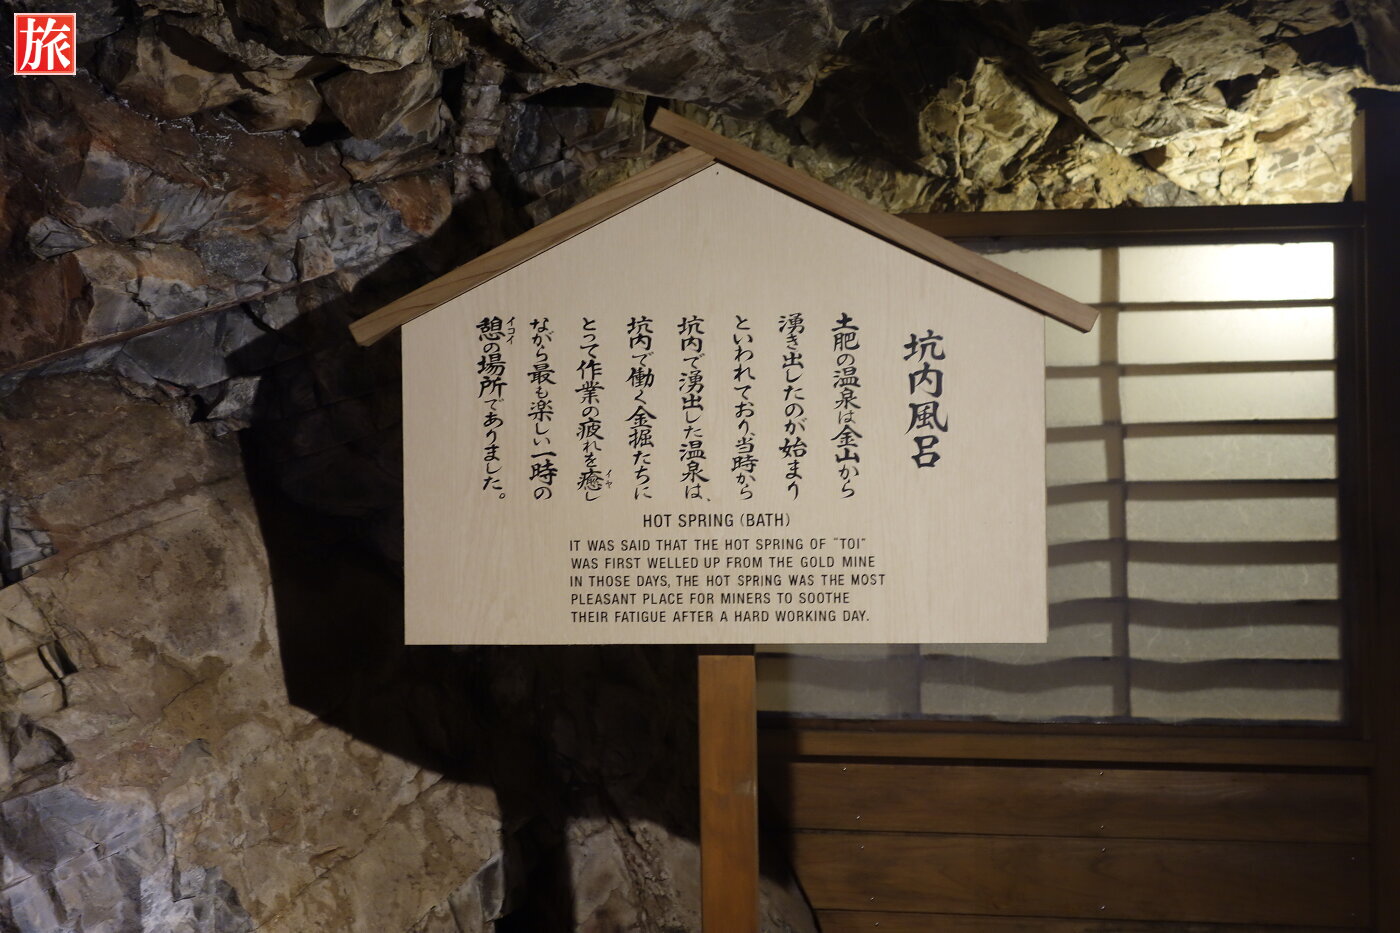 旅
坑内風呂
土肥の温泉は金山から
湧き出したのが始まり
といわれており、当時から
坑内で湧出した温泉は、
坑内で働く金掘たちに
とって作業の疲れを癒し
イヤ
ながら最も楽しい一時の
憩の場所でありました。
イコイ
HOT SPRING (BATH)
IT WAS SAID THAT THE HOT SPRING OF “TOI”
WAS FIRST WELLED UP FROM THE GOLD MINE
IN THOSE DAYS, THE HOT SPRING WAS THE MOST
PLEASANT PLACE FOR MINERS TO SOOTHE
THEIR FATIGUE AFTER A HARD WORKING DAY.